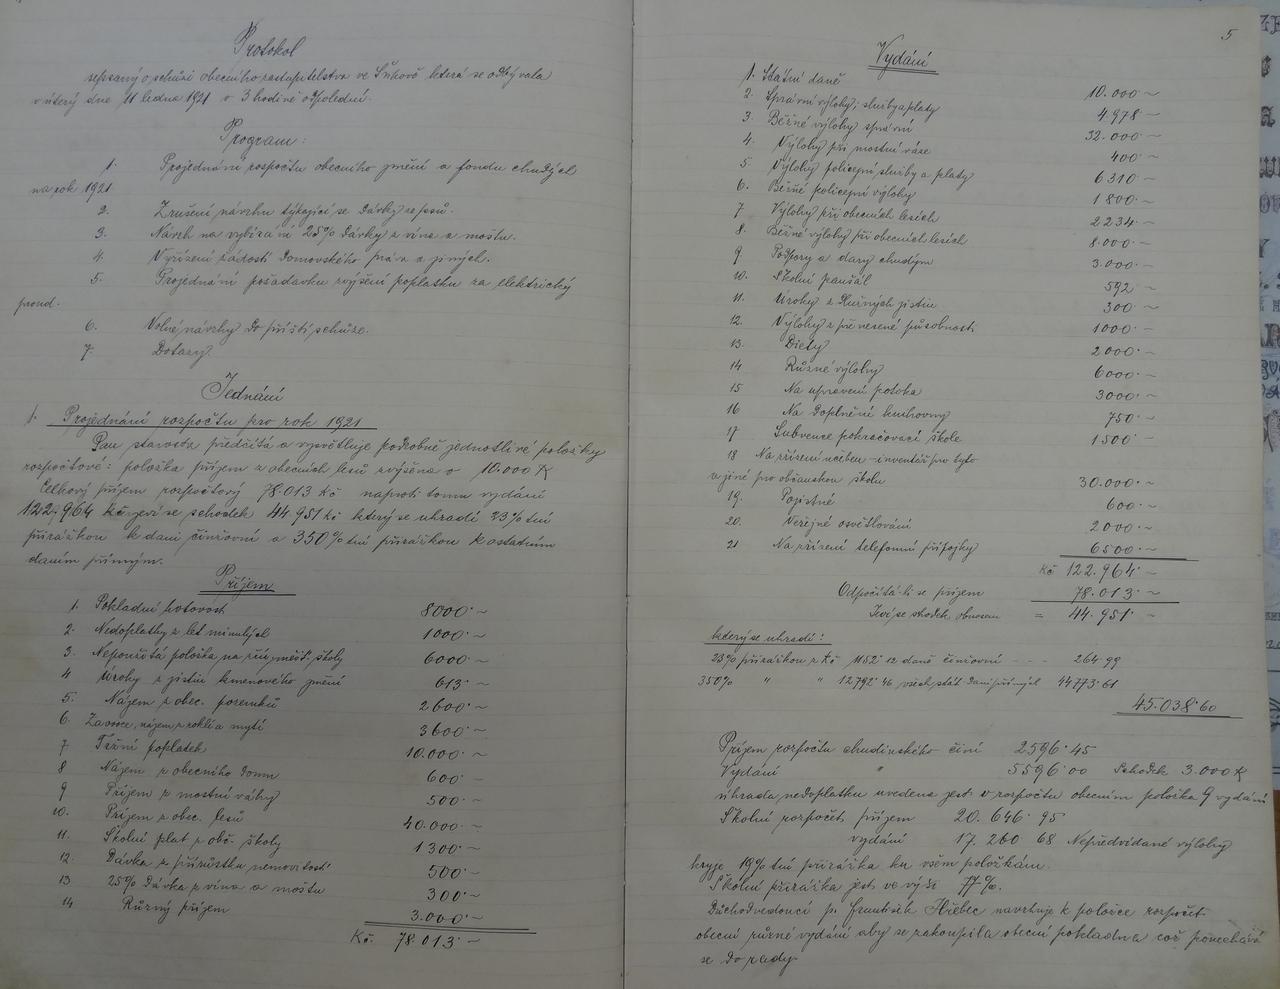 Protokol
sepsaný o schůzi obecního zastupitelstva ve Šukově která se odbývala
v úterý dne 11 ledna 1921 o 3 hodině odpolední.
Program:
1. Projednání rozpočtu obecního jmění a fondu chudých
na rok 1921
2. Zrušení návrhu týkající se dávky ze psů.
3. Návrh na vybírání 25% dávky z vína a moštu.
4. Vyřízení žádostí domovského práva a jiných.
5. Projednání požadavku zvýšení poplatku za elektrický
proud.
6. Volné návrhy do příští schůze.
7. Dotazy.
Jednání
1. Projednání rozpočtu pro rok 1921
Pan starosta předčítá a vysvětluje podrobně jednotlivé položky
rozpočtové: položka příjem z obecních lesů zvýšena o 10.000 K
Celkový příjem rozpočtový 78.013 Kč naproti tomu vydání
122,964 Kč jeví se schodek 44 951 Kč který se uhradí 23% tní
přirážkou k dani činžovní a 350% tní přirážkou k ostatním
daním přímým.
Příjem
1. Pokladní hotovost 8000·~
2. Nedoplatky z let minulých 1000·~
3. Nepoužitá položka na zříz. měšť. školy 6000·~
4 Úroky z jistin kmenového jmění 613·~
5. Nájem z obec. pozemků 2600·~
6. Za ovoce, nájem z roklí a mýtí 3600·~
7. Tržní poplatek 10.000·~
8 Nájem z obecního domu 600·~
9 Příjem z mostní váhy 500·~
10. Příjem z obec. lesů 40.000·~
11. Školní plat z obč. školy 1300·~
12. Dávka z přírůstku nemovitostí 500·~
13 25% Dávka z vína a moštu 300·~
14 Různý příjem 3.000·~
Kč. 78 013·~
5
Vydání
1. Státní daně 10.000~
2. Správní výlohy, služby a platy 4.978·~
3. Běžné výlohy správní 32.000·~
4. Výlohy při mostní váze 400·~
5. Výlohy policejní služby a platy 6310·~
6. Běžné policejní výlohy 1800·~
7 Výlohy při obecních lesích 2234·~
8. Běžné výlohy při obecních lesích 8.000·~
9 Podpory a dary chudým 3.000·~
10. Školní paušál 592·~
11. Úroky z dlužných jistin 300·~
12. Výlohy z přenesené působnosti 1000·~
13. Diety 2000·~
14 Různé výlohy 6000·~
15 Na upravení potoka 3000·~
16 Na doplnění knihovny 750·~
17 Subvence pokračovací škole 1500·~
18 Na zřízení učeben inventář pro tyto
a jiné pro občanskou školu 30.000·~
19. Pojistné 600·~
20. Veřejné osvětlování 2000·~
21 Na zřízení telefonní přípojky 6500·~
Kč 122.964·~
Odpočítá-li se příjem 78.013·~
Jeví se schodek obnosem = 44.951·~
který se uhradí:
23% přirážkou z Kč 1152·12 daně činžovní - - - 264·99
350% " " 12792·46 všech stát. daní přímých 44773·61
45.038·60
Příjem rozpočtu chudinského činí 2596·45
Vydání " 5596·00 Schodek 3.000 K
úhrada nedoplatku uvedena jest v rozpočtu obecním položka 9 vydání
Školní rozpočet příjem 20.646·95
vydání 17.260 68 Nepředvídané výlohy
kryje 19% tní přirážka ku všem položkám.
Školní přirážka jest ve výši 77%.
Důchodvedoucí p. František Hřebec navrhuje k položce rozpočet
obecní různé vydání aby se zakoupila obecní pokladna což ponechává
se do rady